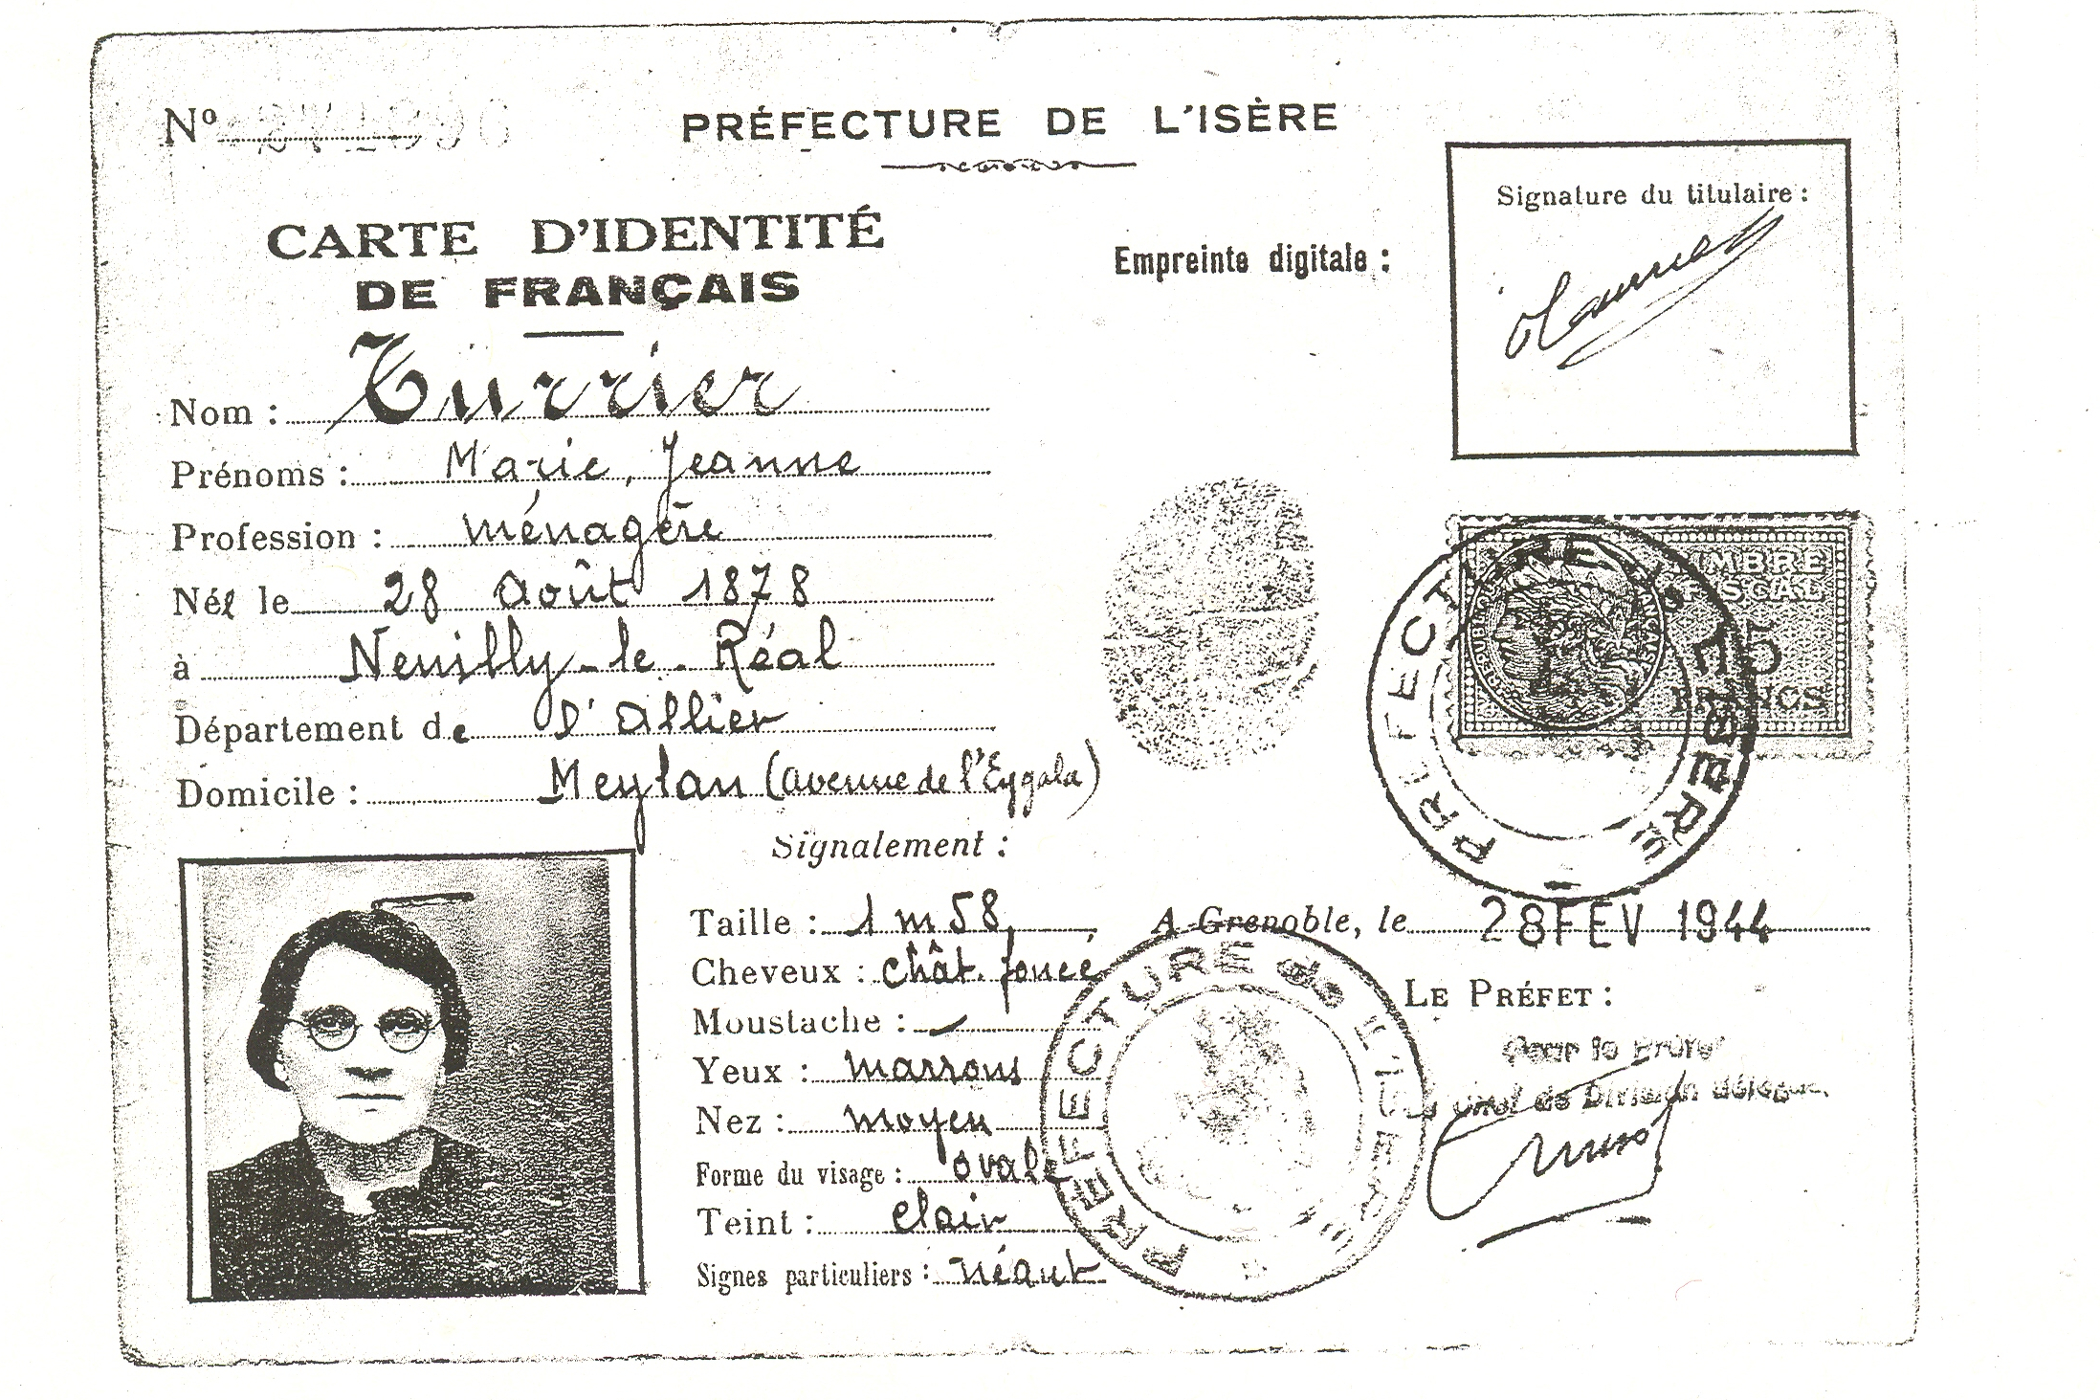 Nº
PRÉFECTURE DE L'ISÈRE
CARTE D'IDENTITÉ
DE FRANÇAIS
Signature du titulaire :
Empreinte digitale :
Nom : Turrier
Prénoms : Marie, Jeanne
Profession : ménagère
Née le 28 août 1878
à Neuilly-le-Réal
Département de l'Allier
Domicile : Meylan (avenue de l'Eygala)
TIMBRE
FISCAL
15
FRANCS
PRÉFECTURE ISÈRE
Signalement :
Taille : 1m58
Cheveux : chât. foncé
Moustache : -
Yeux : marrons
Nez : moyen
Forme du visage : ovale
Teint : clair
Signes particuliers : néant
PRÉFECTURE de L'ISÈRE
A Grenoble, le 28 FEV 1944
LE PRÉFET :
Pour le Préfet
de Division délégué